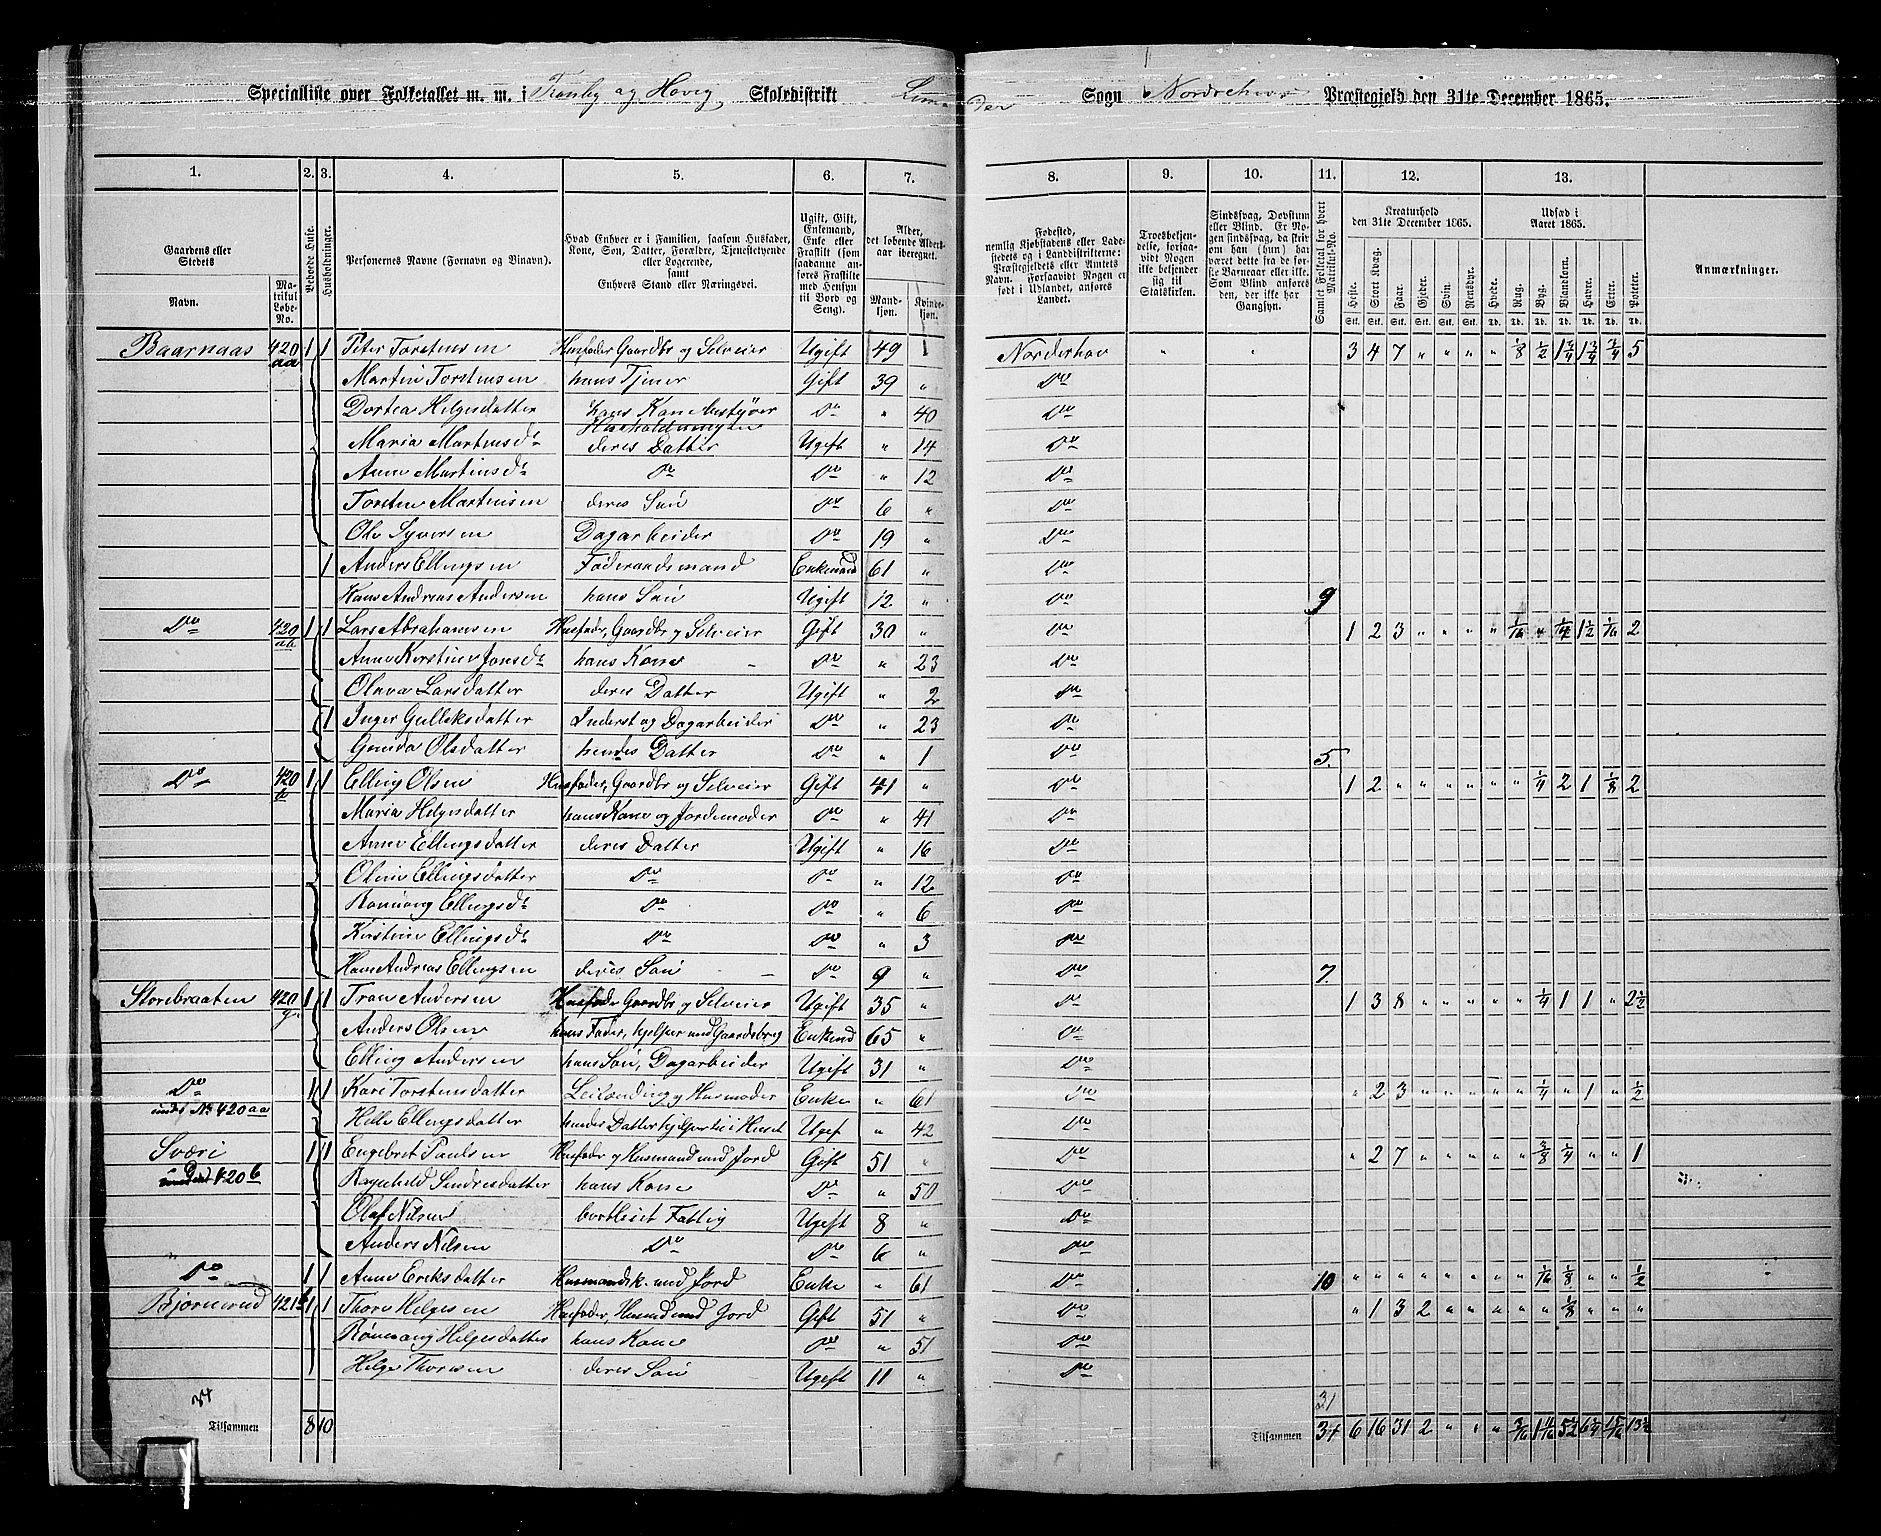 Specialliste over Folketallet m. m. i Tranby og Hovig Skoledistrikt Lunder Sogn Nordrehovs Præstegjeld den 31te December 1865.
1. 2. 3. 4. 5. 6. 7. 8. 9. 10. 11. 12. 13.
Gaardens eller Stedets
Navn.
Matrikul Løbe-No.
Beboede Huse.
Husholdninger.
Personernes Navne (Fornavn og Binavn).
Hvad Enhver er i Familien, saasom Husfader, Kone, Søn, Datter, Forældre, Tjenestetyende eller Logerende, samt Enhvers Stand eller Næringsvei.
Ugift, Gift, Enkemand, Enke eller Fraskilt (som saadanne anføres Fraskilte med Hensyn til Bord og Seng).
Alder, det løbende Aldersaar iberegnet.
Mandkjøn. Kvindekjøn.
Fødested, nemlig Kjøbstadens eller Ladestedets og i Landdistrikterne: Præstegjeldets eller Amtets Navn. Forsaavidt Nogen er født i Udlandet, anføres Landet.
Troesbekjendelse, forsaavidt Nogen ikke bekjender sig til Statskirken.
Sindssvag, Døvstum eller Blind. Er Nogen sindssvag, da skrives dette fra de første Barneaar eller ikke. Som Blind anføres den, der ikke har Gangsyn.
Samlet Folketal for hvert Matrikul-No.
Kreaturhold den 31te December 1865.
Heste. Stort Kvæg. Faar. Gjeder. Svin. Rensdyr.
Udsæd i Aaret 1865.
Hvede. Rug. Byg. Blandkorn. Havre. Erter. Poteter.
Anmærkninger.
Baarnaas 420 aa 1 1 Peter Torstensen Husfader Gaardbr og Selveier Ugift 49 Norderhov " " 3 4 7 " " " " 1/8 1/2 1 3/4 1 3/4 3/4 5
Martin Torstensen hans Tjener Gift 39 " Do
Dortea Helgesdatter hans Kone bestyrer Husholdningen Do " 40 Do
Maria Martinsd. deres Datter Ugift " 14 Do
Anne Martinsd. Do Do " 12 Do
Torsten Martinsen deres Søn Do 6 " Do
Ole Syversen Dagarbeider Do 19 " Do
1 Anders Ellingsen Føderaadsmand Enkemand 61 " Do
Hans Andreas Andersen hans Søn Ugift 12 " Do 9
Do 420 ab 1 1 Lars Abrahamsen Husfader, Gaardbr og Selveier Gift 30 " Do 1 2 3 " " " " 1/16 " 1/4 1 1/2 1/16 2
Anne Kirstine Jonsd. hans Kone Do " 23 Do
Olava Larsdatter deres Datter Ugift " 2 Do
1 Inger Gulliksdatter Inderst og Dagarbeider Do " 23 Do
Gunda Olsdatter hendes Datter Do " 1 Do 5.
Do 420 b 1 1 Elling Olsen Husfader, Gaardbr og Selveier Gift 41 " Do 1 2 " " " " " " 1/4 2 1 1/8 2
Maria Helgesdatter hans Kone og Jordemoder Do " 41 Do
Anne Ellingsdatter deres Datter Ugift " 16 Do
Oline Ellingsdatter Do Do " 12 Do
Rønnaug Ellingsd. Do Do " 6 Do
Kirstine Ellingsd. Do Do " 3 Do
Hans Andreas Ellingsen deres Søn Do 9 " Do 7.
Storebraaten 420 1 1 Tran Andersen Husfader Gaardbr og Selveier Ugift 35 " Do 1 3 8 " " " " " 1/4 1 1 " 2 1/2
Anders Olsen hans Fader, hjelper med Gaardsbrug Enkemd 65 " Do
Elling Andersen hans Søn, Dagarbeider Ugift 31 " Do
Do 1 1 Kari Torstensdatter Leilænding og Husmoder Enke " 61 Do " 2 3 " " " " " 1/4 " 1 " 1/2
under No 420 aa Helle Ellingsdatter hendes Datter hjelper til i Huset Ugif " 42 Do
Sværi 1 1 Engebret Paulsen Husfader og Husmand med Jord Gift 51 " Do " 2 7 " " " " " 3/8 1/4 " " 1
420 b Ragnhild Sindresdatter hans Kone Do " 50 Do
Olaf Nilsen bortleiet Fattig Ugift 8 " Do
Anders Nilsen Do Do 6 " Do
Do 1 1 Anne Eriksdatter Husmandsk. med Jord Enke " 61 Do 10 " " " " " " " " 1/16 1/8 " " 1/2
Bjørnerud 421 1 1 Thore Helgesen Husfader, Husmd med Jord Gift 51 " Do " 1 3 2 " " " " " 1/8 " " "
Rønnaug Helgesdatter hans Kone Do " 51 Do
Helge Thoresen deres Søn Ugift 11 " Do
34 31
Tilsammen 8 10 Tilsammen 34 6 16 31 2 " " " 3/16 5 1/2 6 1/4 15/16 13 1/2